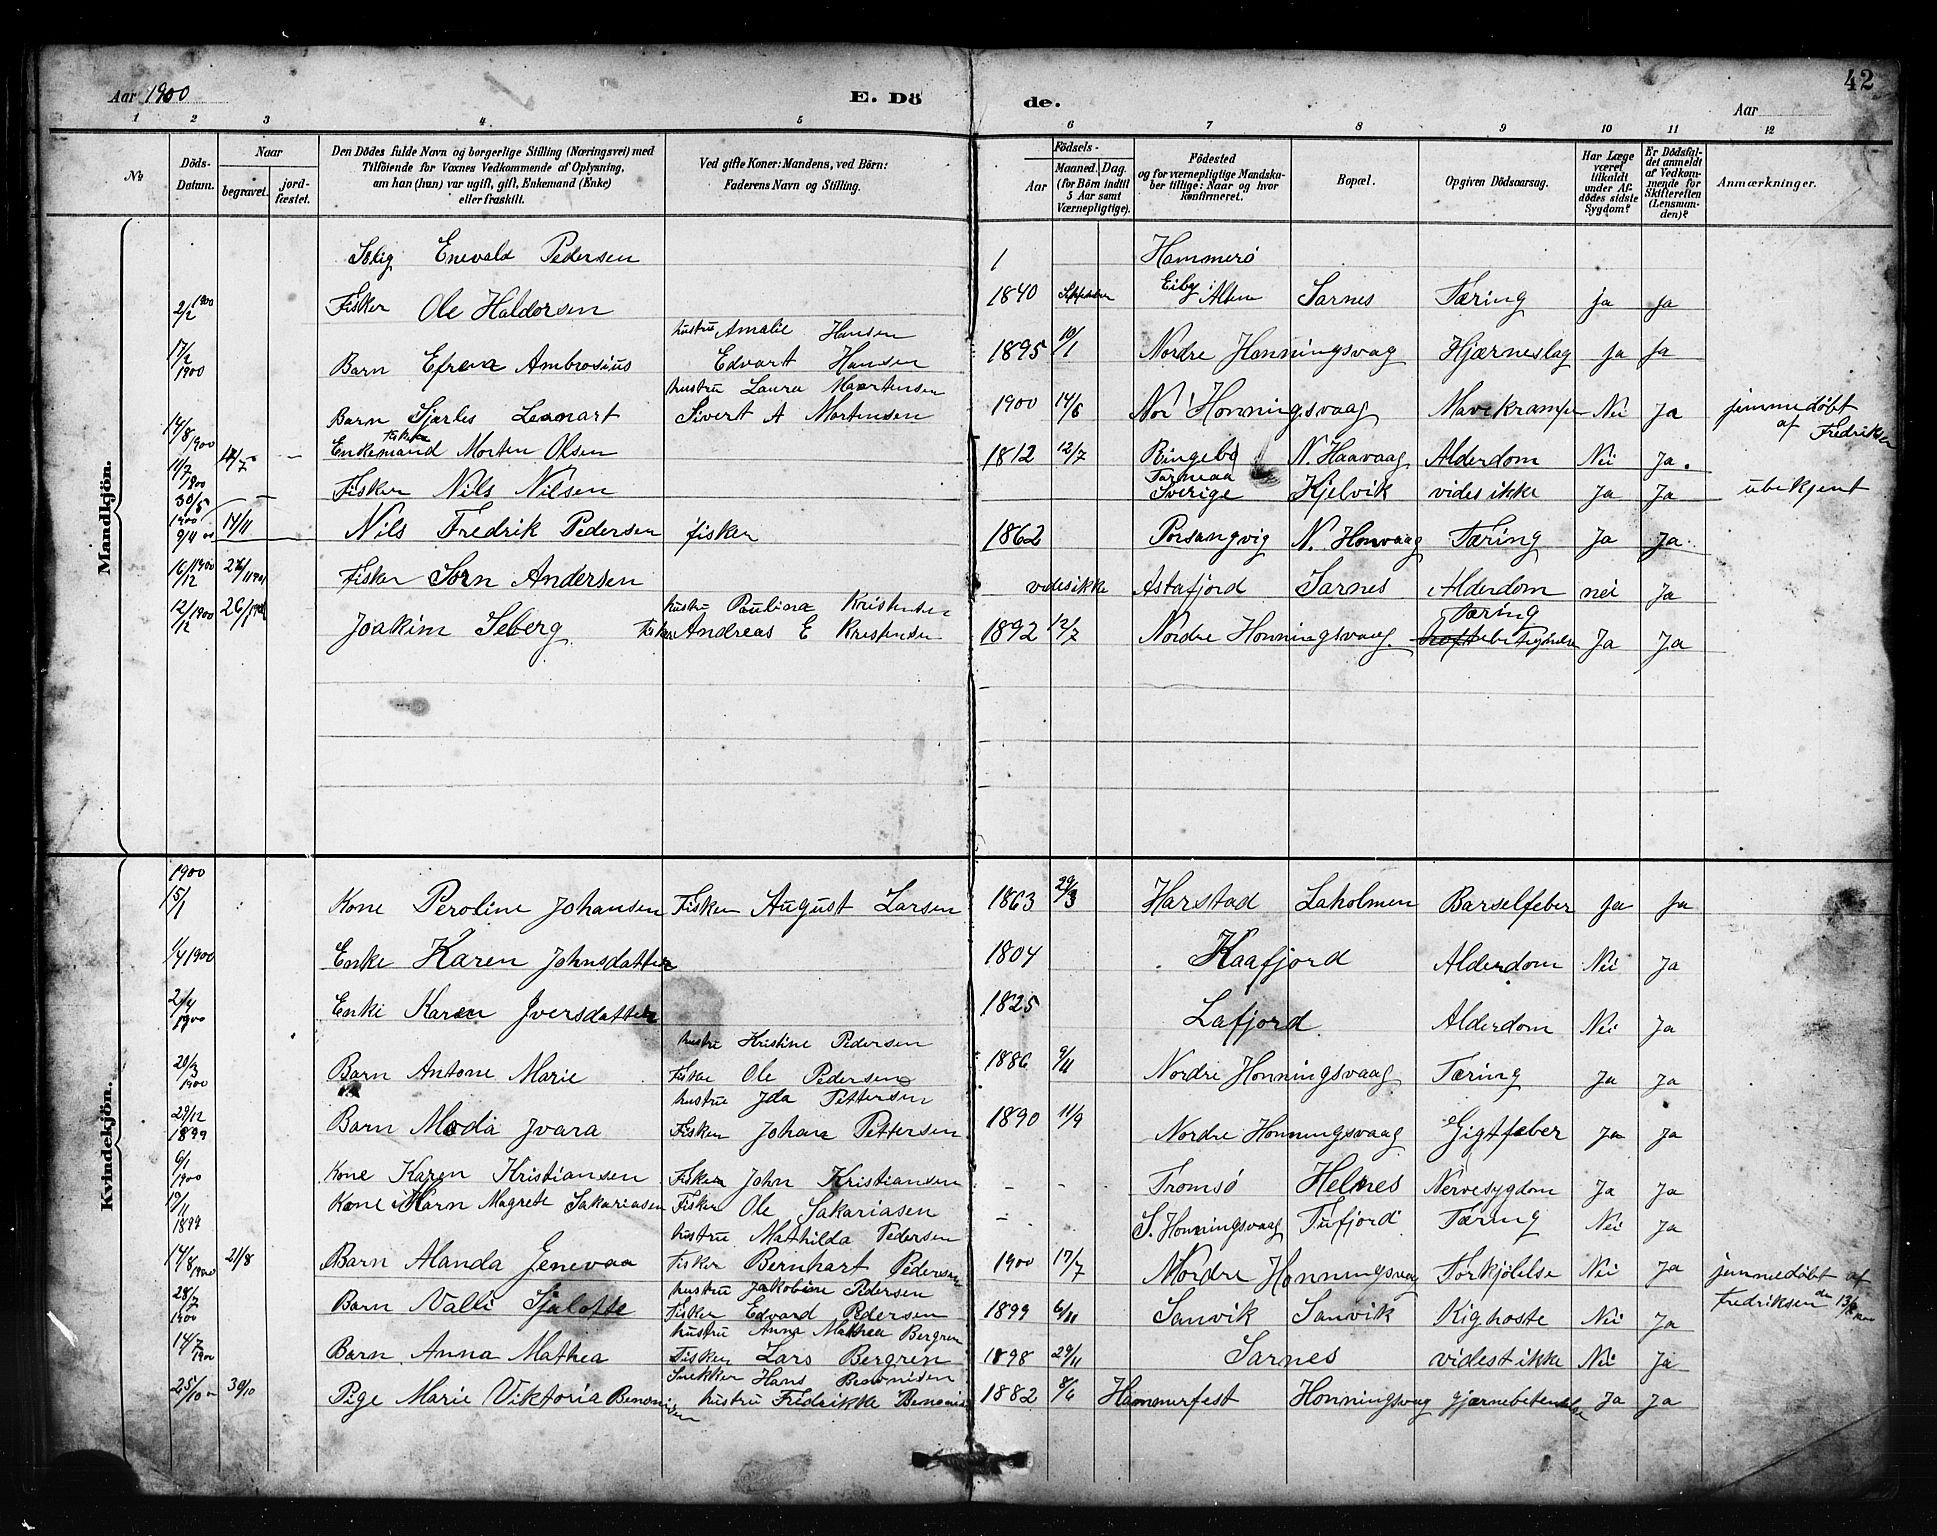 42
Aar 1900
E. Dö de.
Aar
1 2 3 4 5 6 7 8 9 10 11 12
№
Döds-Datum.
Naar
begravet.
jord-fæstet.
Den Dödes fulde Navn og borgerlige Stilling (Næringsvei) med
Tilföiende for Voxnes Vedkommende af Oplysning,
om han (hun) var ugift, gift, Enkemand (Enke)
eller fraskilt.
Ved gifte Koner: Mandens, ved Börn:
Faderens Navn og Stilling.
Födsels-
Aar
Maaned. Dag.
(for Börn indtil
5 Aar samt
Værnepligtige).
Födested
og for værnepligtige Mandska-
ber tillige: Naar og hvor
konfirmeret.
Bopæl.
Opgiven Dödsaarsag.
Har Læge
været
tilkaldt
under Af-
dödes sidste
Sygdom?
Er Dödsfal-
det anmeldt
af Vedkom-
mende for
Skifteretten
(Lensman-
den)?
Anmærkninger.
Mandkjön.
Enevald Pedersen 1 Hammerø
2/2 1900 Fisker Ole Haldorsen 1840 Eiby Alten Sarnes Tæring ja ja
hustru Amalie Hansen
17/2 1900 Barn Efren Ambrosius Edvart Hansen 1895 10/1 Nordre Honningsvaag Hjærneslag ja ja
hustru Laura Maartensen
14/8 1900 Barn Sjarles Leonart Sivert A Mortensen 1900 14/6 Nor Honningsvaag Mavekrampe Nei Ja jemmedøbt af Fredriksen
Enkemand Fisker Morten Olsen 1812 12/7 Ringebo N. Haavaag Alderdom Nei Ja.
30/5 1900 Fisker Nils Nilsen Torneaa Sverige Kjelvik vides ikke Ja Ja ubekjent
9/11 00 14/11 Nils Fredrik Pedersen fisker 1862 Porsangvig N. Honvaag Tæring Ja Ja
Fisker Sørn Andersen vides ikke Astafjord Sarnes Alderdom nei Ja
hustru Paulina Kristensen
12/12 1900 Joakim Seberg Fisker Andreas E Kristensen 1892 12/7 Nordre Honningsvaag Tæring Ja Ja
Kvindekjön.
1900
15/1 Kone Peroline Johansen Fisker August Larsen 1863 29/3 Harstad Laholmen Barselfeber ja ja
1/4 1900 Enke Karen Johnsdatter 1804 Kaafjord Alderdom Nei Ja
2/4 1900 Enke Karen Iversdatter 1825 Lafjord Alderdom Nei Ja
hustru Kristine Pedersen
20/3 1900 Barn Antone Marie Fisker Ole Pedersen 1886 9/11 Nordre Honningsvaag Tæring Ja Ja
hustru Ida Pettersen
29/12 1899 Barn Moda Ivara Fisker Johan Pettersen 1890 11/9 Nordre Honningsvaag Gigtfeber ja ja
6/1 1900 Kone Karen Kristiansen Fisker John Kristiansen - - Tromsø Helnes Nervesygdom Ja Ja
19/11 1899 Kone Marn Magrete Sakariasen Fisker Ole Sakariasen - S. Honningsvaag Tufjord Tæring Nei Ja
hustru Mathilda Pedersen
14/8 1900 21/8 Barn Alanda Jenevaa Fisker Bernhart Pedersen 1900 17/7 Nordre Honningsvaag Forkjølelse Nei Ja jemmedøbt af Fredriksen den 13/8
hustru Jakobine Pedersen
28/7 1900 Barn Valli Sjalotte Fisker Edvard Pedersen 1899 6/11 Sanvik Sanvik Kighoste Nei Ja
hustru Anna Mathea Bergren
14/7 1900 Barn Anna Mathea Fisker Lars Bergren 1898 29/11 Sarnes videst ikke Nei Ja
Snekker Hans Benonisen
25/10 30/10 Pige Marie Viktoria Benonisen hustru Fredrikke Benonis 1882 8/6 Hammerfest Honningsvaag gjærnebetendelse Ja Ja